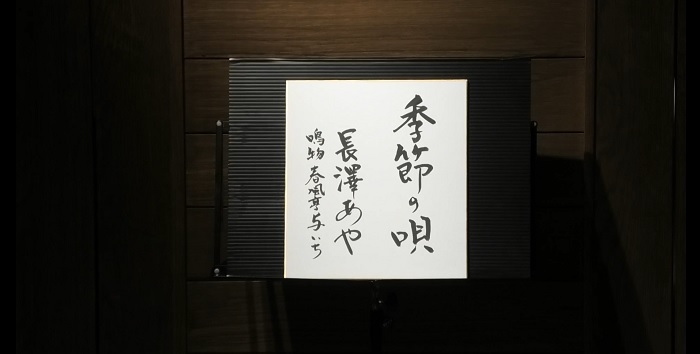 季節の唄
長澤あや
鳴物 春風亭与いち